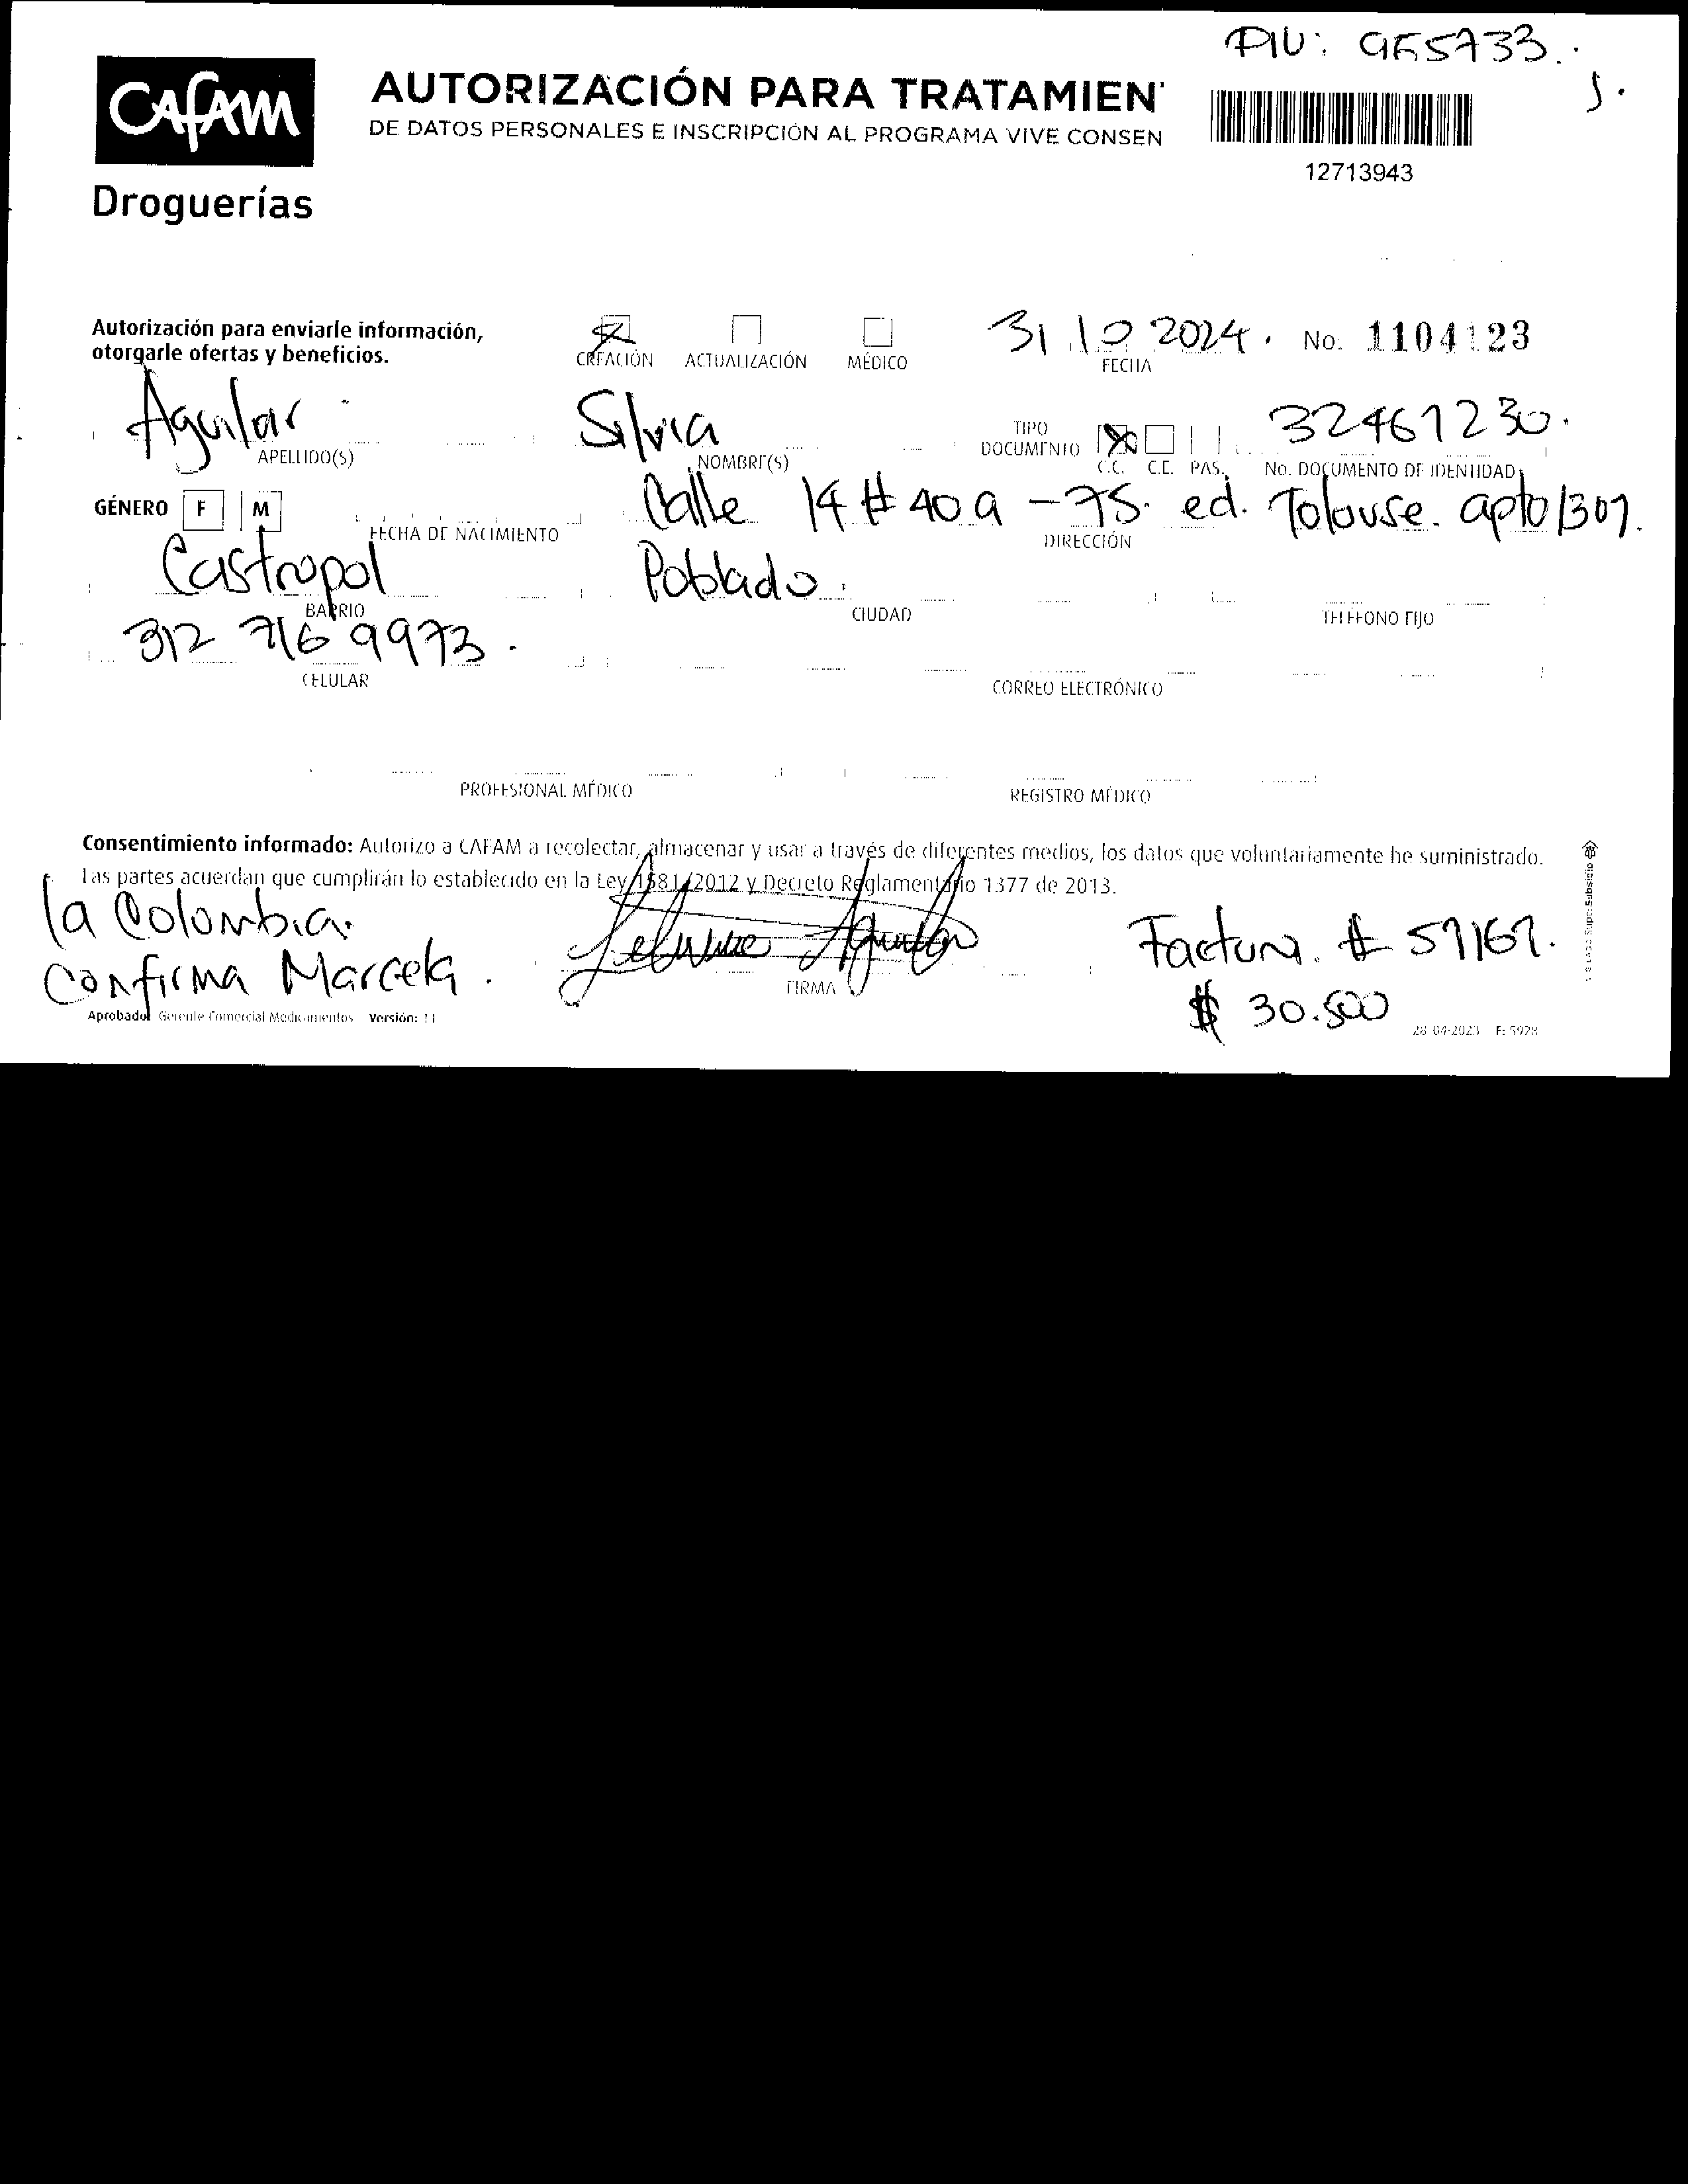 PIU: 955733.
CAFAM
Droguerías
AUTORIZACIÓN PARA TRATAMIEN
DE DATOS PERSONALES E INSCRIPCIÓN AL PROGRAMA VIVE CONSEN
12713943
Autorización para enviarle información,
otorgarle ofertas y beneficios.
CREACIÓN ACTUALIZACIÓN MÉDICO
31 10 2024. No. 1104123
FECHA
Aguilar Silvia 32461230.
APELLIDO(S) NOMBRE(S) TIPO DOCUMENTO C.C. C.E. PAS. No. DOCUMENTO DE IDENTIDAD
GÉNERO F M Calle 14 # 40 a - 75. ed. Tolouse. apto 1307.
FECHA DE NACIMIENTO DIRECCIÓN
Castropol Poblado.
BARRIO CIUDAD TELÉFONO FIJO
312 716 9973.
CELULAR CORREO ELECTRÓNICO
PROFESIONAL MÉDICO REGISTRO MÉDICO
Consentimiento informado: Autorizo a CAFAM a recolectar, almacenar y usar a través de diferentes medios, los datos que voluntariamente he suministrado.
Las partes acuerdan que cumplirán lo establecido en la Ley 1581/2012 y Decreto Reglamentario 1377 de 2013.
la Colombia.
Confirma Marcela.
Aguilar
FIRMA
Factura. # 59167.
$ 30.500
Aprobador Gerente Comercial Medicamentos Versión: 11
28-04-2023 F: 5928